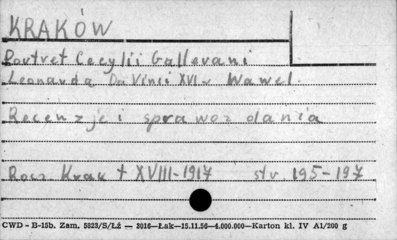 KRAKÓW
Portret Cecylii Gallerani
Leonarda Da Vinci XVI w Wawel.
Recenzje i sprawozdania
Rocz. Krak † XVIII-1917 str. 195-197
CWD - B-15b. Zam. 5823/S/Łź — 2016—Łak—15.11.56—4.000.000—Karton kl. IV A1/200 g